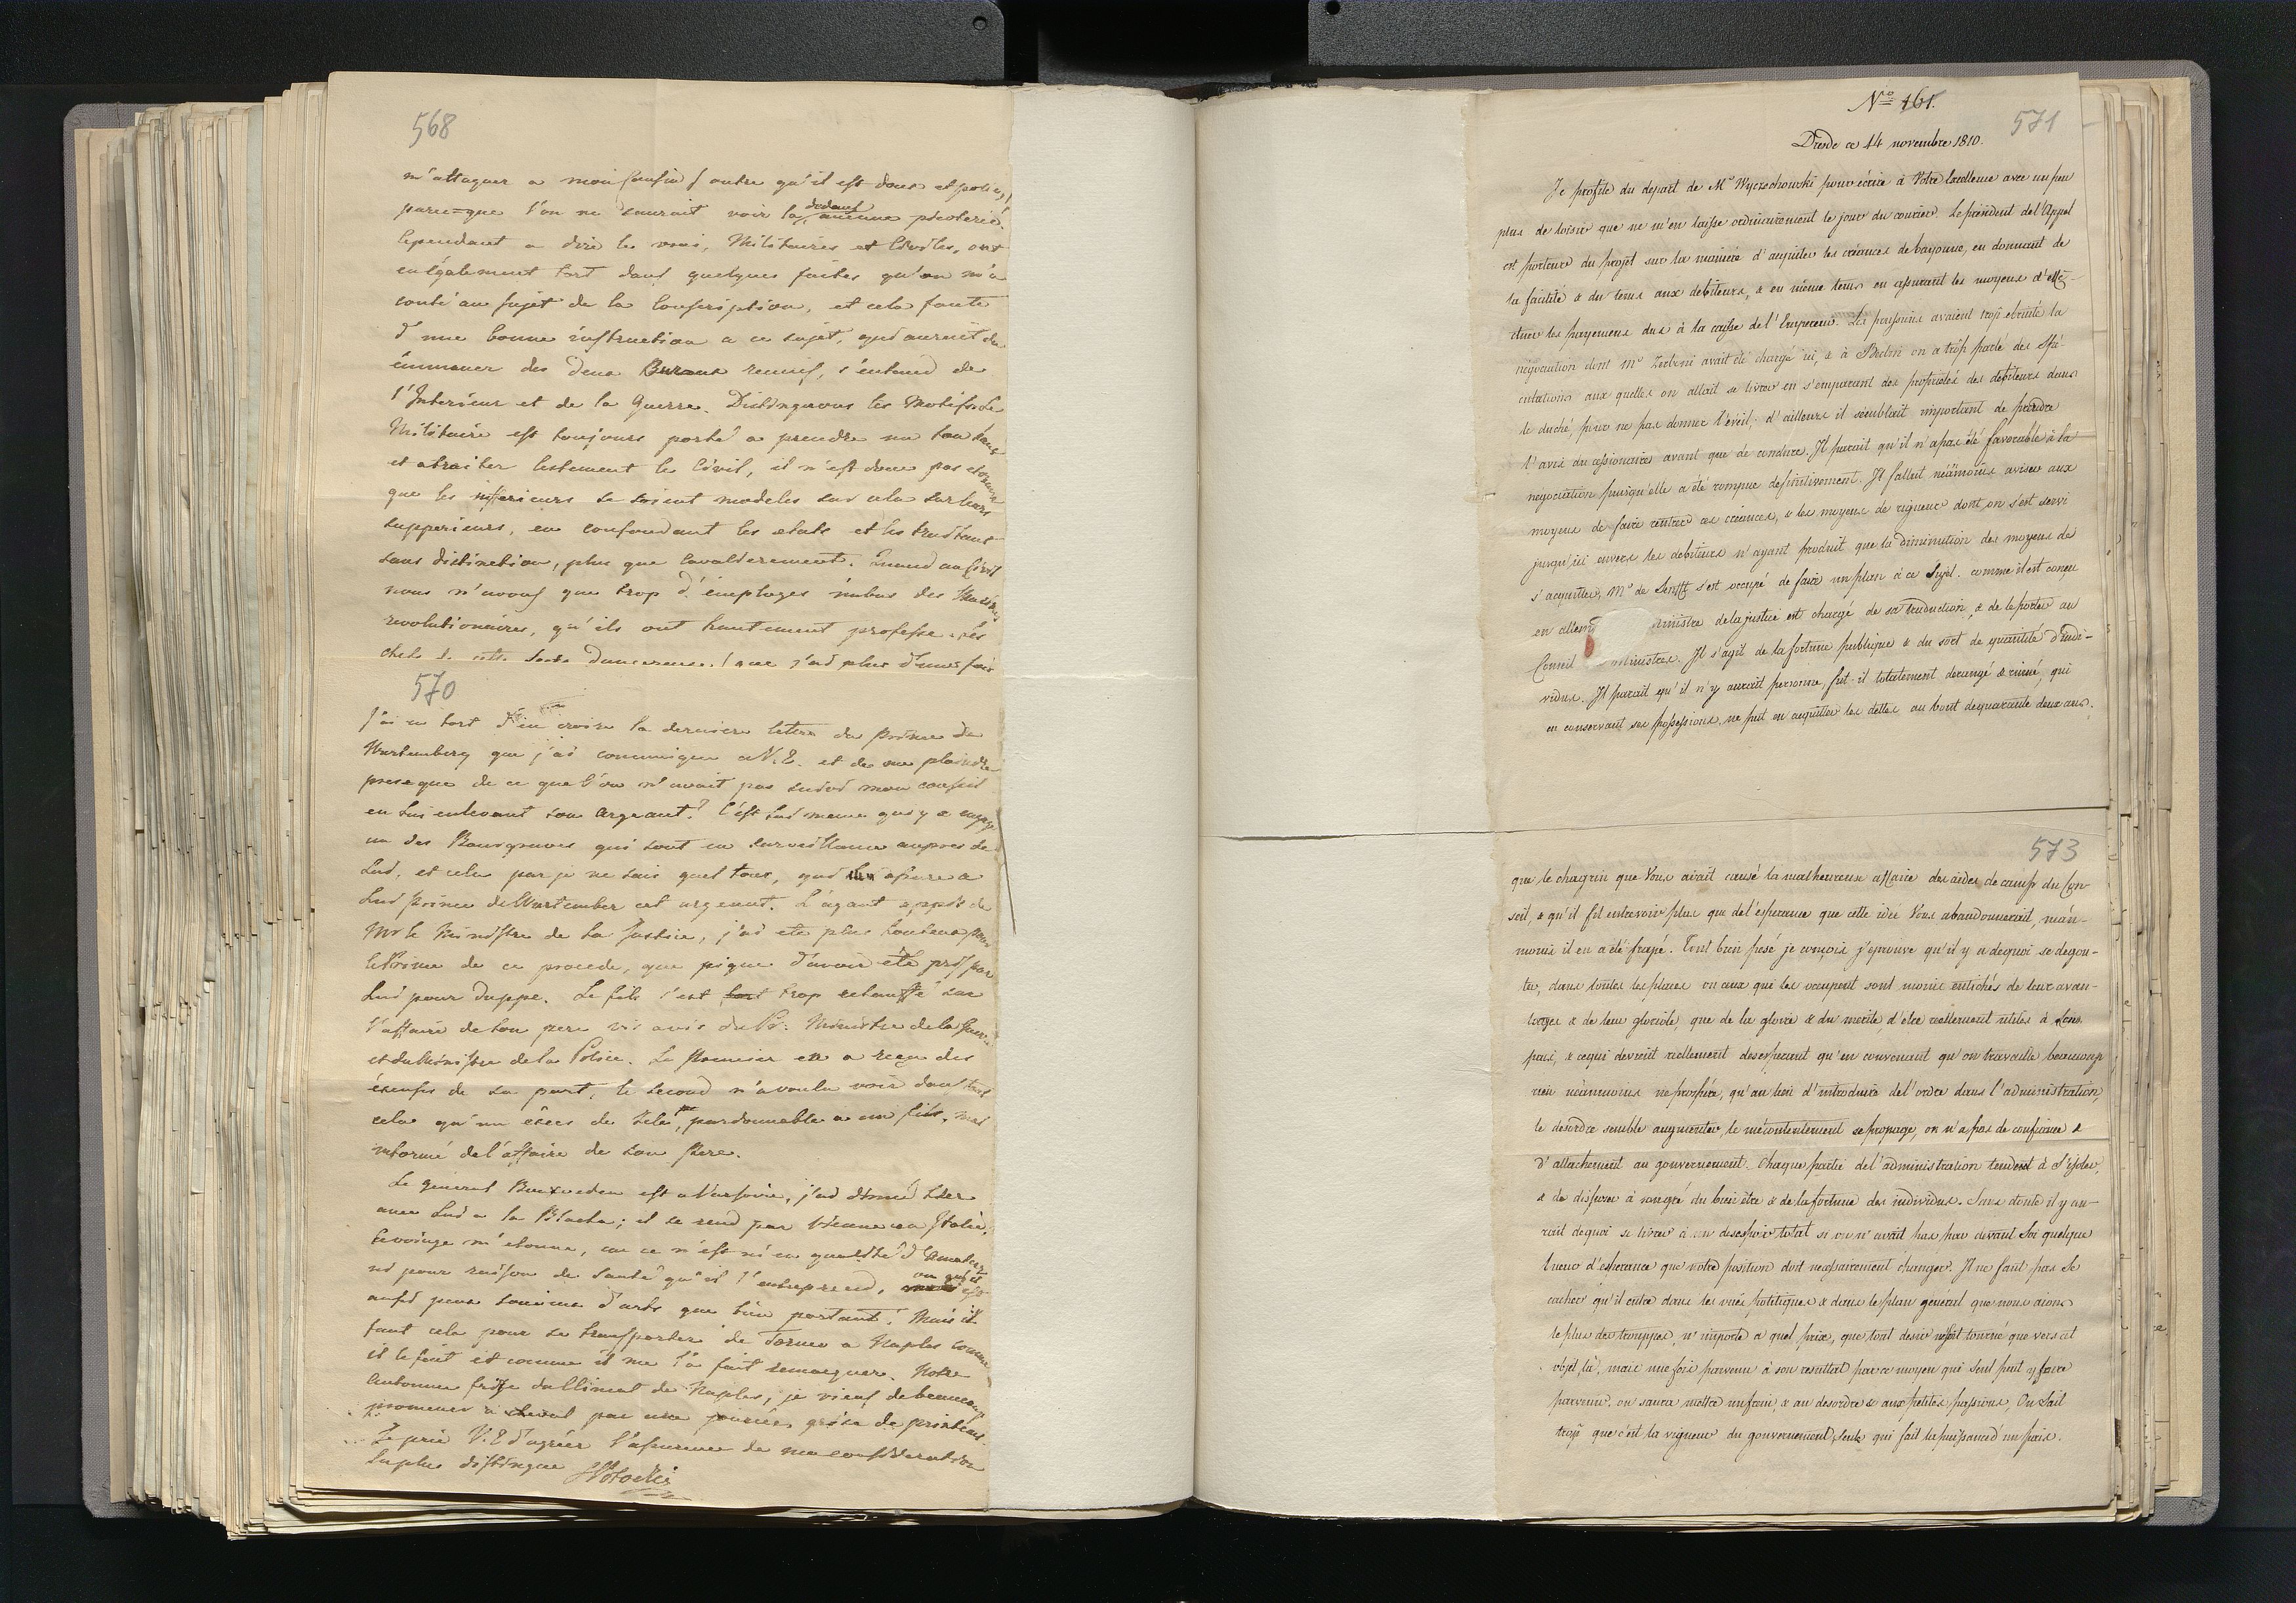 568
m'attaquer a mon
parceque l'on ne saurait voir la dedans aucune
Cependant a dire le vrai, Militaires et Civiles, ont
également tort dans quelques faites qu'on m'a
conté au sujet de la Conscription, et cela faute
d'une bonne instruction a ce sujet, qui auroit du
émmaner des deux Bureaux reunis, s'entend de
l'Interieur et de la Guerre. Distinguons les Motifs. Le
Militaire est toujours porté a prendre un ton haut
et a traiter lestement le Civil, il n'est donc pas etonnant
que les inferieurs se soient modeles sur cela sur leurs
supperieurs, en confondant les etats et les traitant
sans distinction, plus que Cavalierement. Quand au Civil
nous n'avons que trop d'employes imbus des Maximes
revolutionaires, qu'ils ont hautement professe. Les
chefs de cette Secte Dangereuse, que j'ai plus d'une fois
570
J'ai eu tort d'en croire la derniere lettre du Prince de
Wurtemberg que j'ai comunique a V.E. et de me plaindre
presque de ce que l'on n'avait pas suivi mon conseil
en lui enlevant son argeant? C'est lui meme qui y a engagé
un des Bourgeois qui sont en surveillance aupres de
Lui, et cela par je ne sais quel tour, qui assure a
Lui prince de Wurtember cet argeant. L'ayant appris de
Mr le Ministre de la Justice, j'ai eté plus honteux pour
le Prince de ce procede, que pique d'avoir été pris par
Lui pour duppe. Le fils s'est trop echauffé sur
l'affaire de son pere vis avis du Pr: Ministre de la Guerre
et du Ministre de la Police. Le Premier en a reçu des
éxcuses de sa part, le second n'a voulu voir dans tout
cela qu'un éxces de zele, pardonnable a un fils, mal
informé de l'affaire de son Pere.
Le general Buxhoeden est a Varsovie, j'ai diné hier
avec Lui a la Blacha; il se rend par Vienne en Italie.
Ce voiage m'etonne, car ce n'est ni en qualité d'Amateur
ni pour raison de Santé qu'il l'entreprend, vu qu'il est
aussi peu connu d'arts que bien portant. Mais il
faut cela pour se transporter de Torneo a Naples comme
il le fait et comme il me l'a fait remarquer. Notre
Automne frise du Climat de Naples, je viens de beaucoup
promener à cheval par une journée grise de printems.
Je prie V.E d'agréer l'assurence de ma consideration
la plus distingue SPotocki
No 161.
571
Dresde ce 14 novembre 1810.
Je profite du départ de Mr Wyczechowski pour écrire à Votre Excellence avec un peu
plus de loisir que ne m'en laisse ordinairement le jour du courier. Le président de l'Appel
est porteur du projet sur la manière d'aquiter les créances de bayonne, en donnant de
la facilité & du tems aux debiteurs, & en même tems en assurant les moyens d'effe-
ctuer les payemens dus à la caisse de l'Empereur. Les prussiens avaient trop ebruité la
négociation dont Mr Zerboni avait été chargé ici, & à Berlin on a trop parlé des spé-
culations aux quelles on allait se livrer en s'emparant des propriétés des débiteurs dans
le duché, pour ne pas donner l'éveil; d'ailleurs il semblait important de prendre
l'avis du cessionaire avant que de conclure. Il parait qu'il n'a pas été favorable à la
négociation puisqu'elle a été rompue definitivement. Il fallait néanmoins aviser aux
moyens de faire rentrer ces créances, & les moyens de rigueur dont on s'est servi
jusqu'ici envers les débiteurs n'ayant produit que la diminution des moyens de
s'acquitter, Mr de Senfft s'est occupé de faire un plan à ce sujet. comme il est conçu
en allem ministre de la justice est chargé de sa traduction, & de le porter au
Conseil Ministres. Il s'agit de la fortune publique & du sort de quantité d'indi-
vidus. Il parait qu'il n'y aurait personne, fut-il totalement derangé & ruiné, qui
en conservant ses possessions, ne put en acquitter les dettes au bout de quarante deux ans.
573
que le chagrin que Vous avait causé la malheureuse affaire des aides de camp du Con-
seil, & qu'il fit entrevoir plus que de l'esperance que cette idée Vous abandonnerait, néan-
moins il en a été frappé. Tout bien pesé je conçois j'eprouve qu'il y a de quoi se degou-
ter, dans toutes les places où ceux qui les occupent sont moins entichés de leur avan-
tages & de leur gloriole, que de la gloire & du merite d'etre reellement utiles à leur
païs, & ce qui devient reellement desesperant qu'en convenant qu'on travaille beaucoup
rien néanmoins ne prospère, qu'au lieu d'introduire de l'ordre dans l'administration,
le desordre semble augmenter, le mécontentement se propage, on n'a pas de confiance &
d'attachement au gouvernement. Chaque partie de l'administration tendent à s'isoler,
& de disposer à son gré du bien être & de la fortune des individus. Sans doute il y au-
rait de quoi se livrer à un desespoir total si on n'avait pas par devant Soi quelque
lueur d'esperance que notre position doit necessairement changer. Il ne faut pas se
cacher qu'il entre dans les vües politiques & dans le plan général que nous aions
le plus de trouppes, n'importe à quel prix, que tout desir n'est tourné que vers cet
objet là, mais une fois parvenu à son resultat par ce moyen qui seul peut y faire
parvenir, on saura mettre un frein, & au desordre & aux petites passions, On sait
trop que c'est la vigueur du gouvernement seule qui fait la puissance d'un païs.